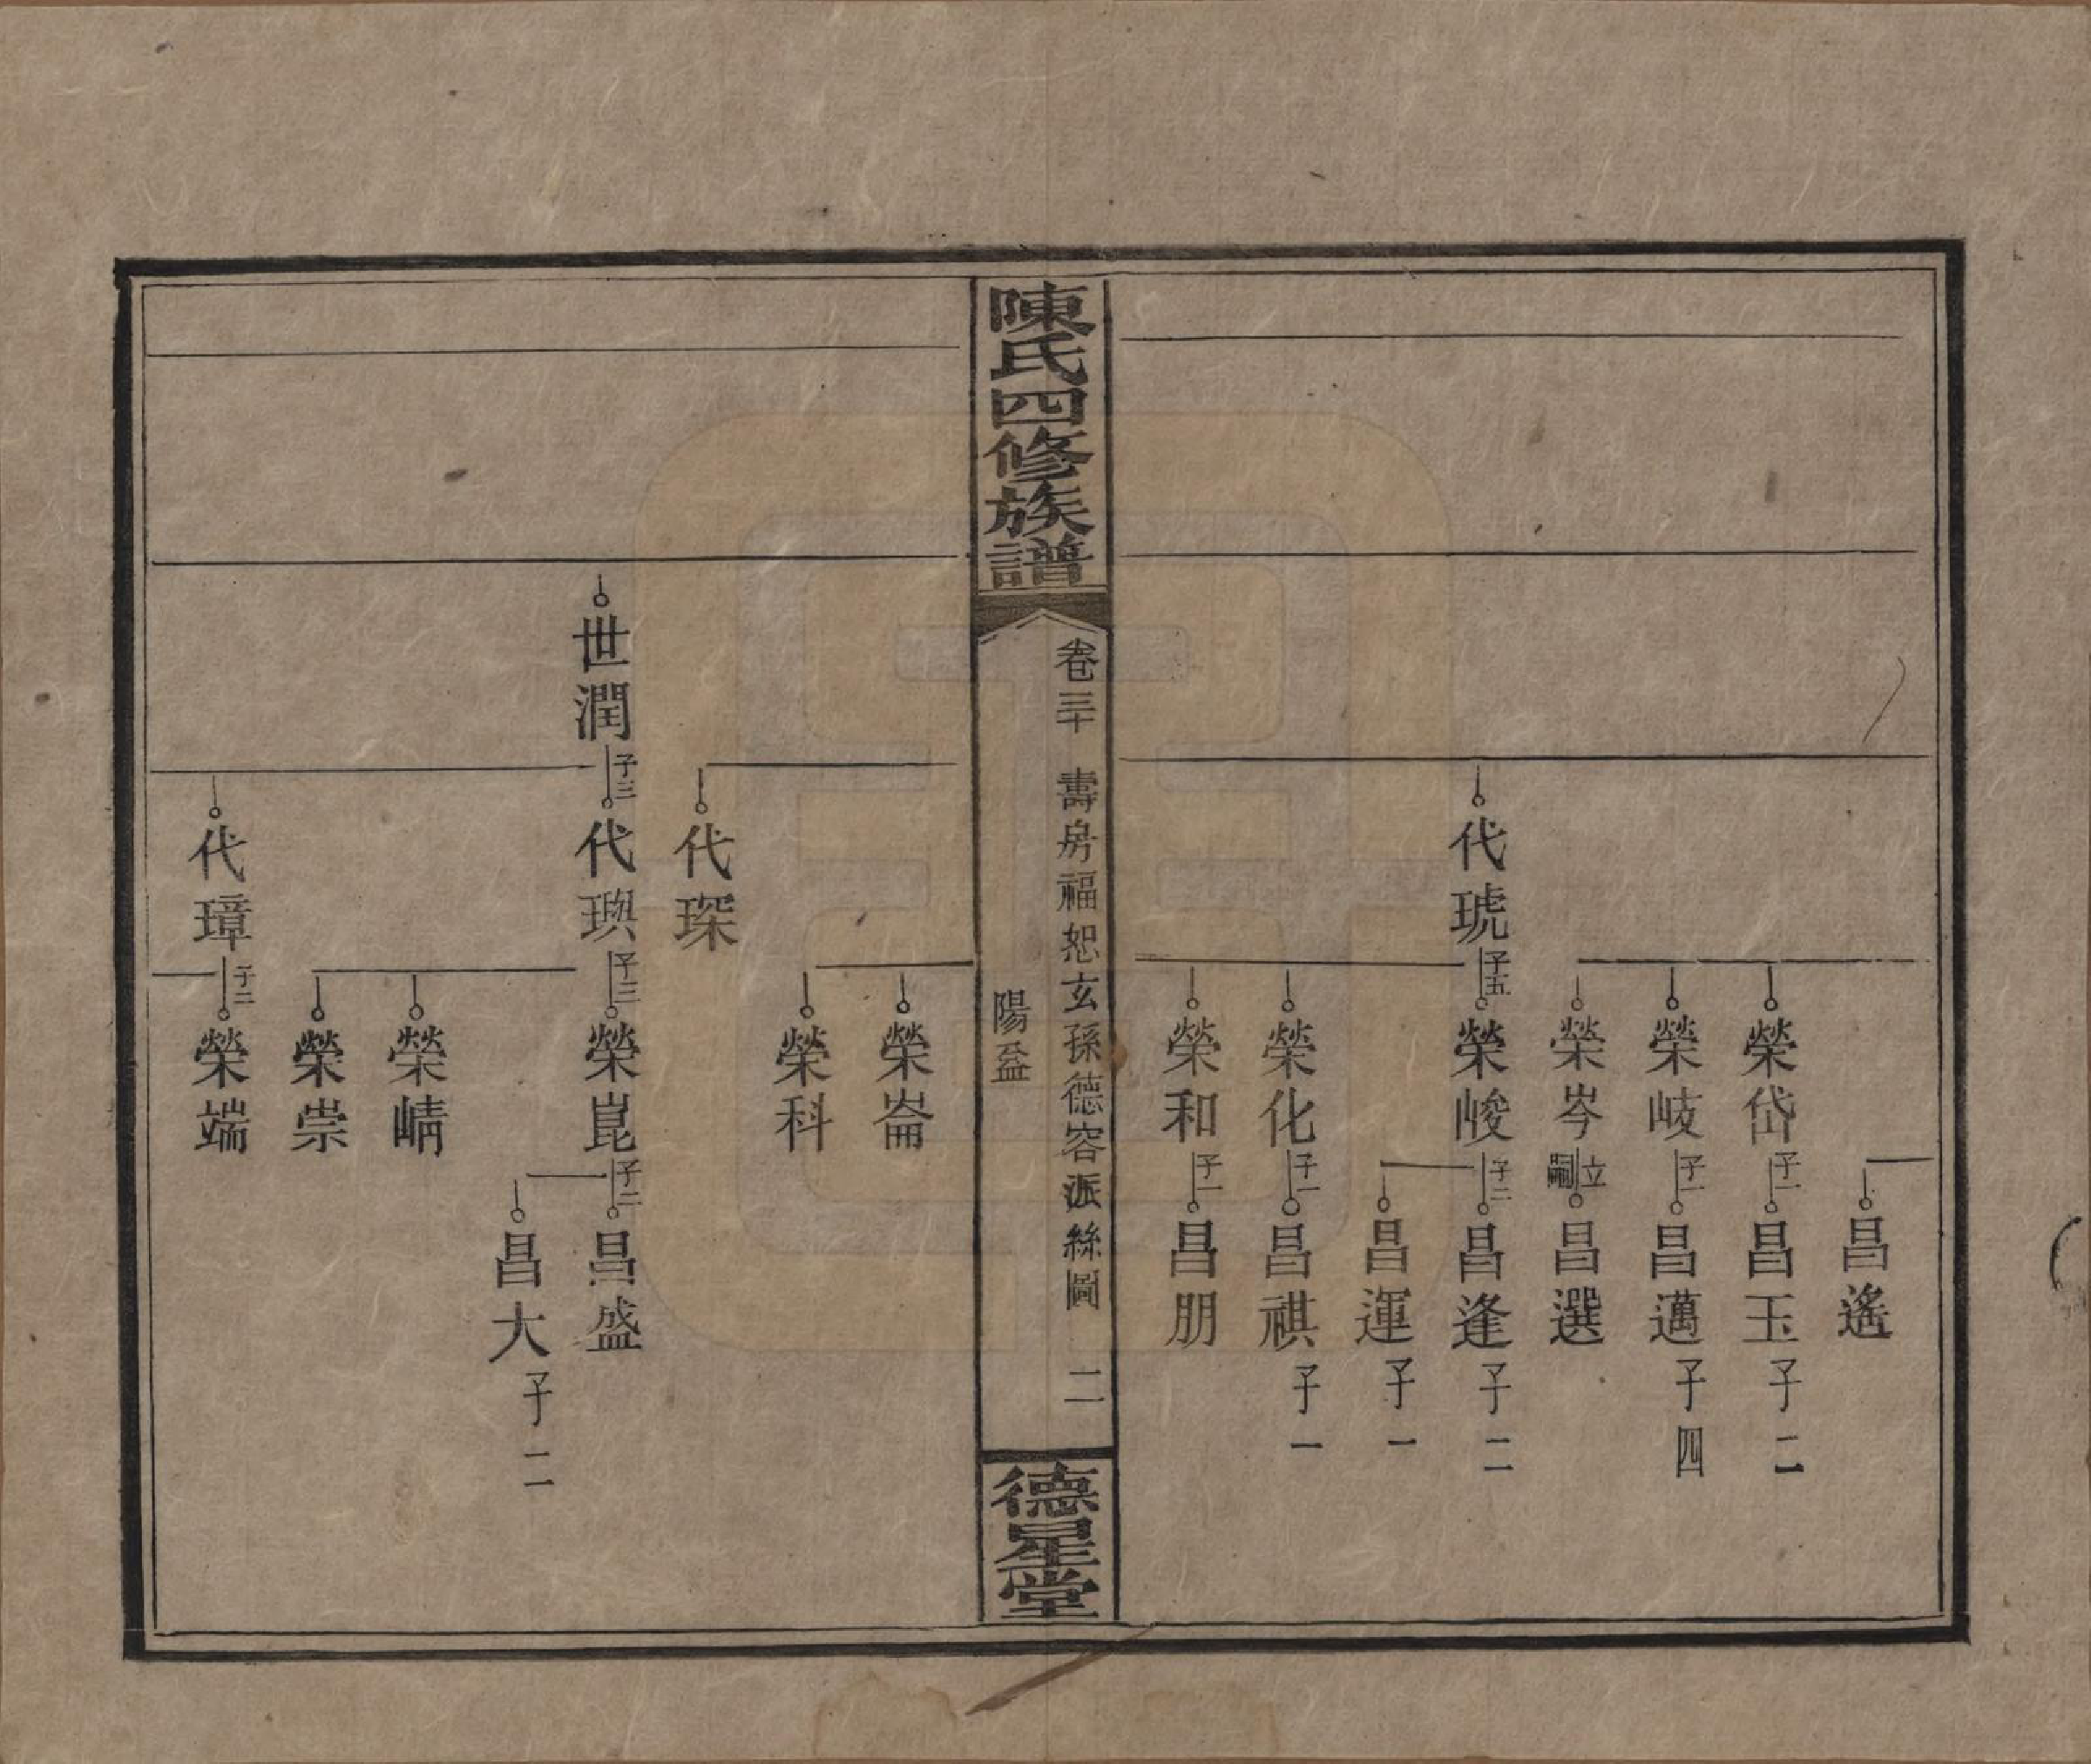 昌遙
榮岱 子一 昌玉 子二
榮岐 子一 昌邁 子四
榮岑 立嗣 昌選
代琥 子五 榮峻 子二 昌逢 子二
昌運 子一
榮化 子一 昌祺 子一
榮和 子一 昌朋
陳氏四修族譜
卷三十 壽房福恕玄孫德容派絲圖 二
陽益
德星堂
榮崙
榮科
代琛
世潤 子三 代璵 子三 榮崑 子二 昌盛
昌大 子二
榮崝
榮崇
代璋 子二 榮端